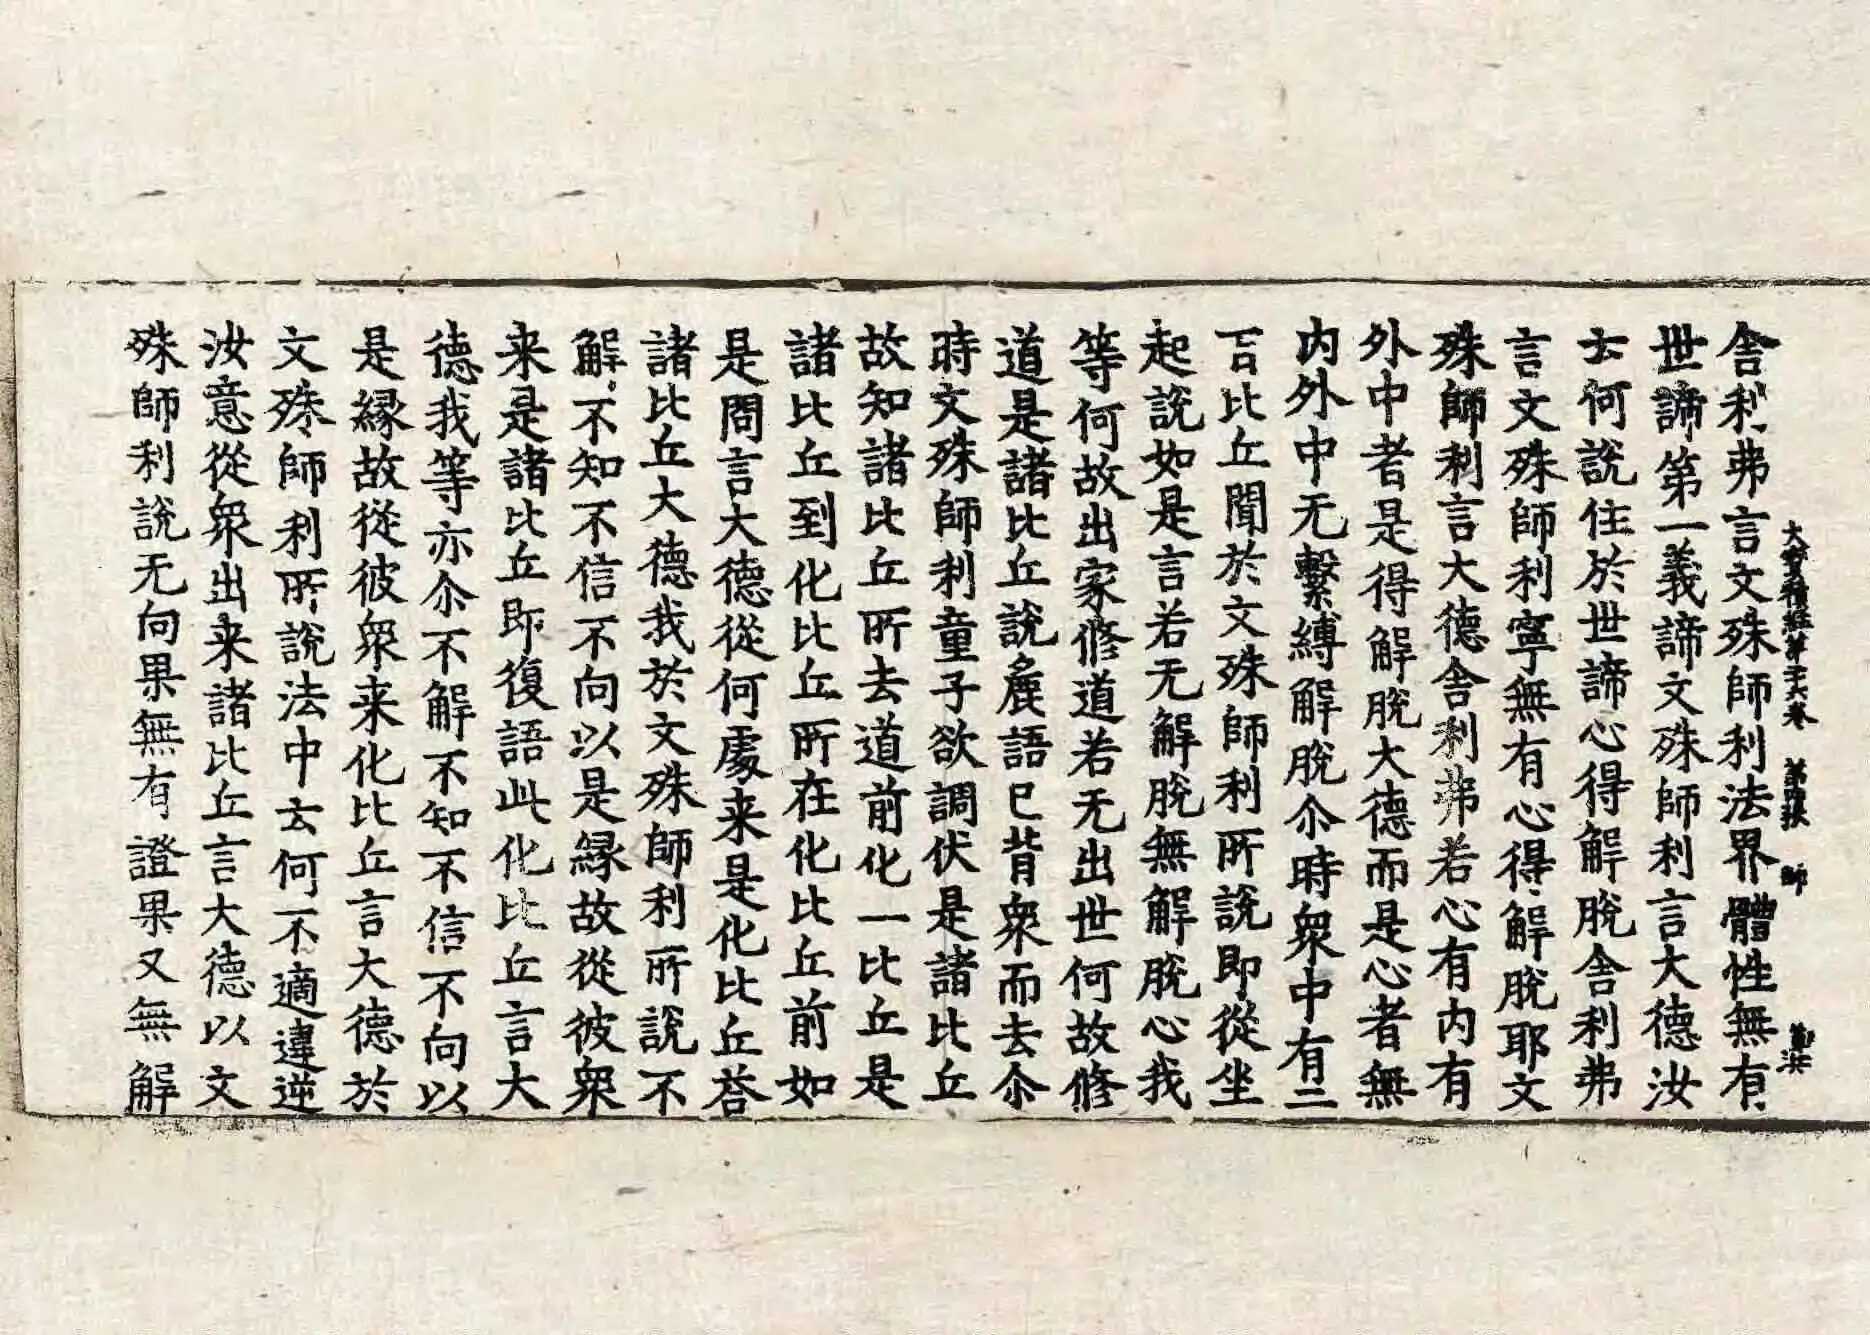 大寶積經第二十六卷 師
舍利弗言文殊師利法界體性無有
世諦第一義諦文殊師利言大德汝
云何說住於世諦心得解脫舍利弗
言文殊師利寧無有心得解脫耶文
殊師利言大德舍利弗若心有內有
外中者是得解脫大德而是心者無
內外中无繫縛解脫尒時眾中有二
百比丘聞於文殊師利所說即從坐
起說如是言若无解脫無解脫心我
等何故出家修道若无出世何故修
道是諸比丘說麁語已背眾而去尒
時文殊師利童子欲調伏是諸比丘
故知諸比丘所去道前化一比丘是
諸比丘到化比丘所在化比丘前如
是問言大德從何處来是化比丘荅
諸比丘大德我於文殊師利所說不
解不知不信不向以是緣故從彼眾
来是諸比丘即復語此化比丘言大
德我等亦尒不解不知不信不向以
是緣故從彼眾来化比丘言大德於
文殊師利所說法中云何不適違逆
汝意從眾出来諸比丘言大德以文
殊師利說无向果無有證果又無解